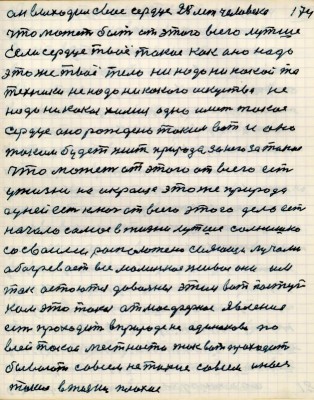 он выходил свае сердце 28 лет человека 174
что может быт от этого всего лутше
Если сердце твоё такое как оно надо
это же твоё тело ни надо ни какой то
техники не надо ни какого искуства не
надо ни какая химия одно имет такое
сердце оно рождено таким вот и оно
таким будет жит природа за него за такое
что может от этого от всего ест
у жизни на краще это же природа
а у ней ест ключ от всего этого дело ест
начало самое в жизни лутше солнышко
со своими расположено сияющи лучами
обогревает все маленкое живое она им
так остаются довольна этим вот поступ
ком это такие атмосферное явления
ест проходит в природе не одинаково по
всей такое местности так вот проходят
бывают совсем не такие совсем иные
такие в жизни плохие